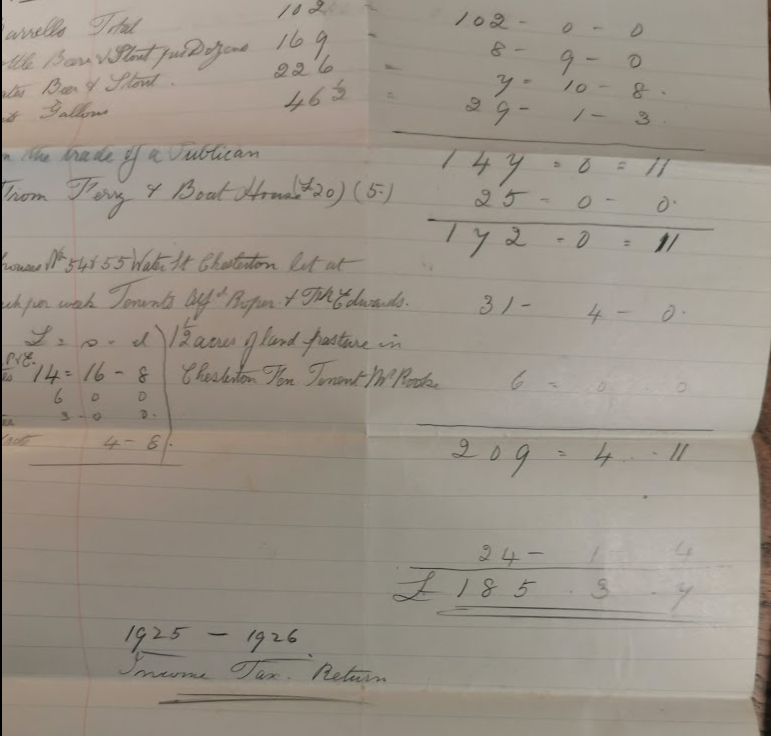 arrells Total 102 - 102 - 0 - 0
ttle Beer & Stout per Dozens 169 - 8 - 9 - 0
ates Beer & Stout . 226 = 7 - 10 - 8 .
ts Gallons 46 ½ = 29 - 1 - 3
n the trade of a Publican 147 = 0 = 11
From Ferry & Boat House (£20) (5.) 25 - 0 - 0.
172 - 0 = 11
houses No 54 & 55 Water St Chesterton let at
each per week Tenants Alfd Roper & Edwards. 31 - 4 - 0.
£ = s - d 1½ acres of land pasture in
14 = 16 - 8 Chesterton Fen Tenant Mr Rooke 6 = 0 - 0
6 0 0
3 - 0 0.
4 - 8.
209 = 4 - 11
24 - 1 4
£ 185 . 3 . 7
1925 - 1926
Income Tax. Return